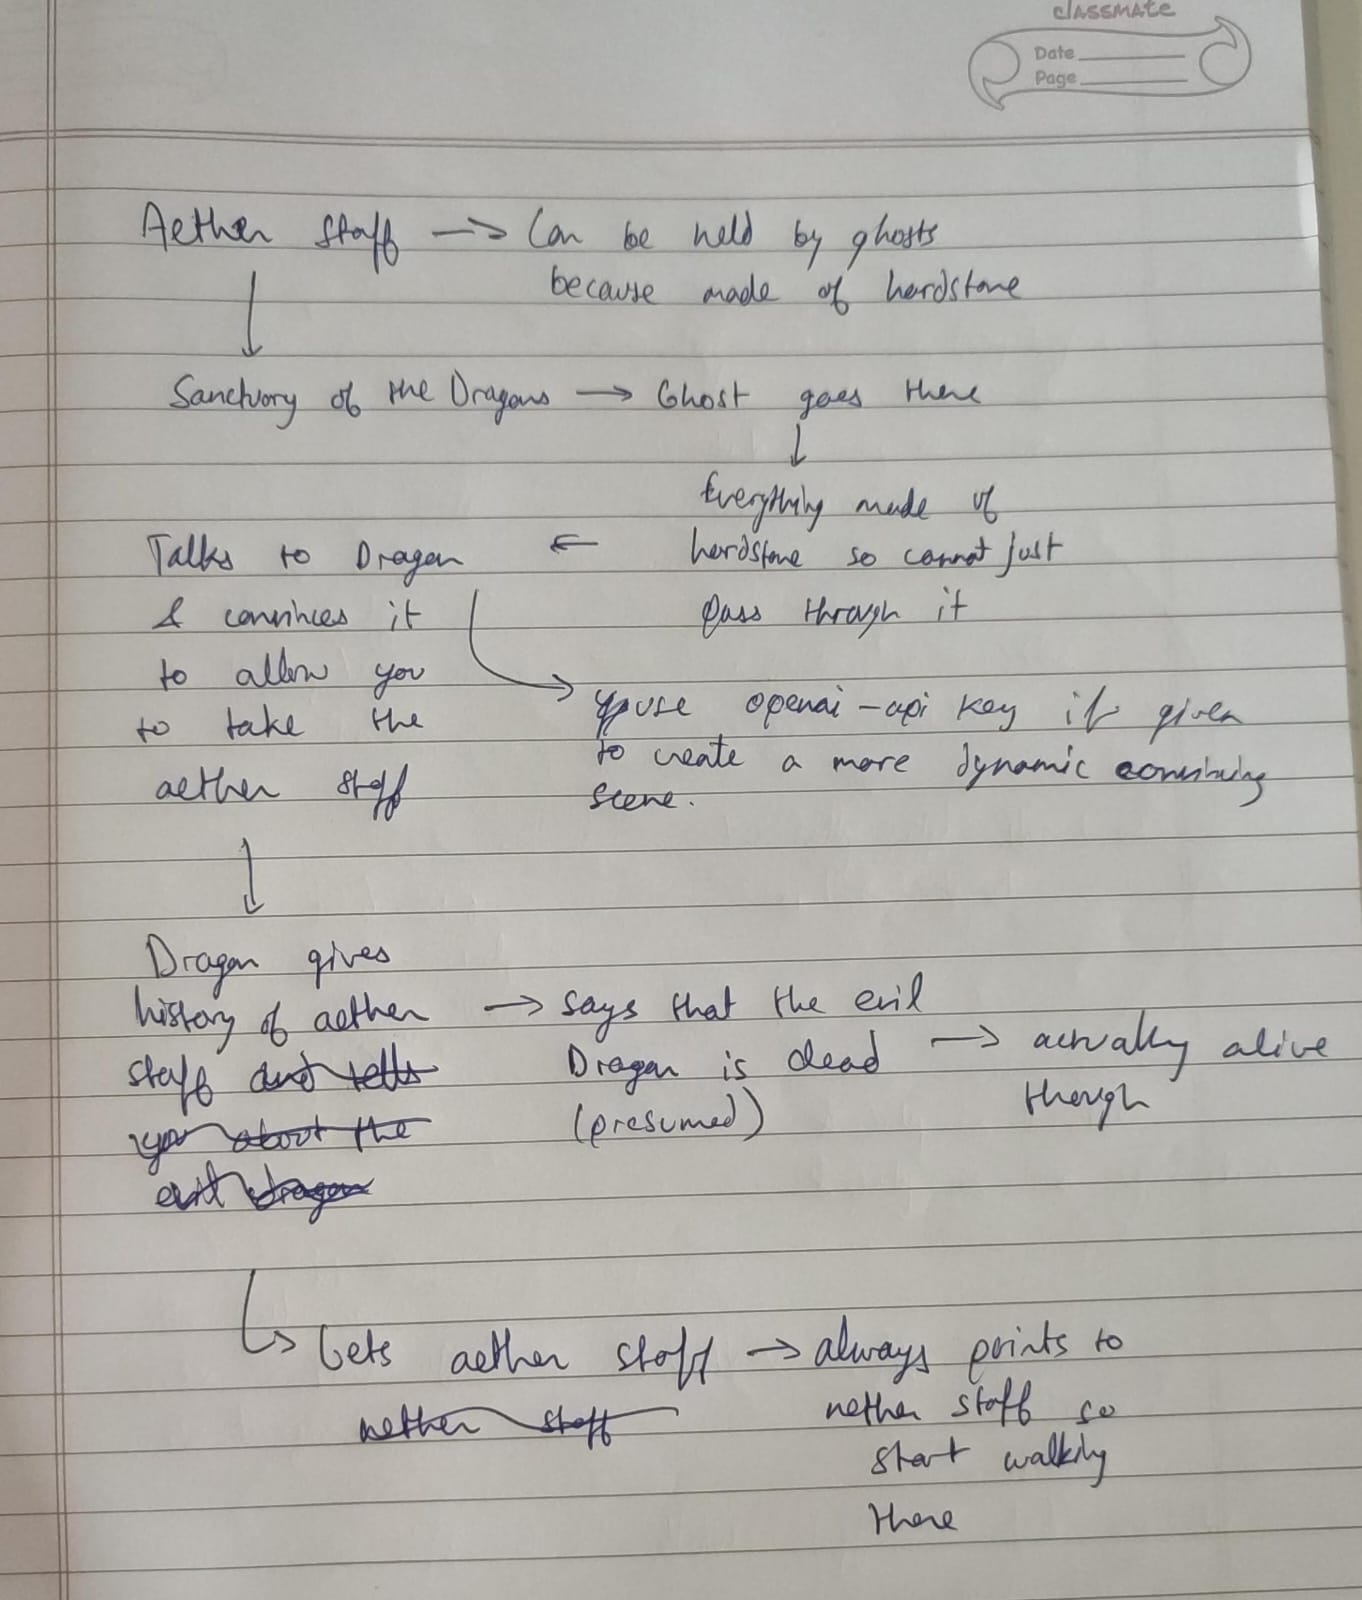 classmate
Date
Page
Aether staff → Can be held by ghosts
because made of hardstone
↓
Sanctuary of the Dragons → Ghost goes there
↓
Everything made of
hardstone so cannot just
pass through it
←
Talks to Dragon
& convinces it
to allow you
to take the
aether staff
→ use openai-api key if given
to create a more dynamic convincing
scene.
↓
Dragon gives
history of aether
staff and tells
you about the
evil dragon
→ says that the evil
Dragon is dead
(presumed)
→ actually alive
though
↳ Gets aether staff → always points to
nether staff
nether staff so
start walking
there